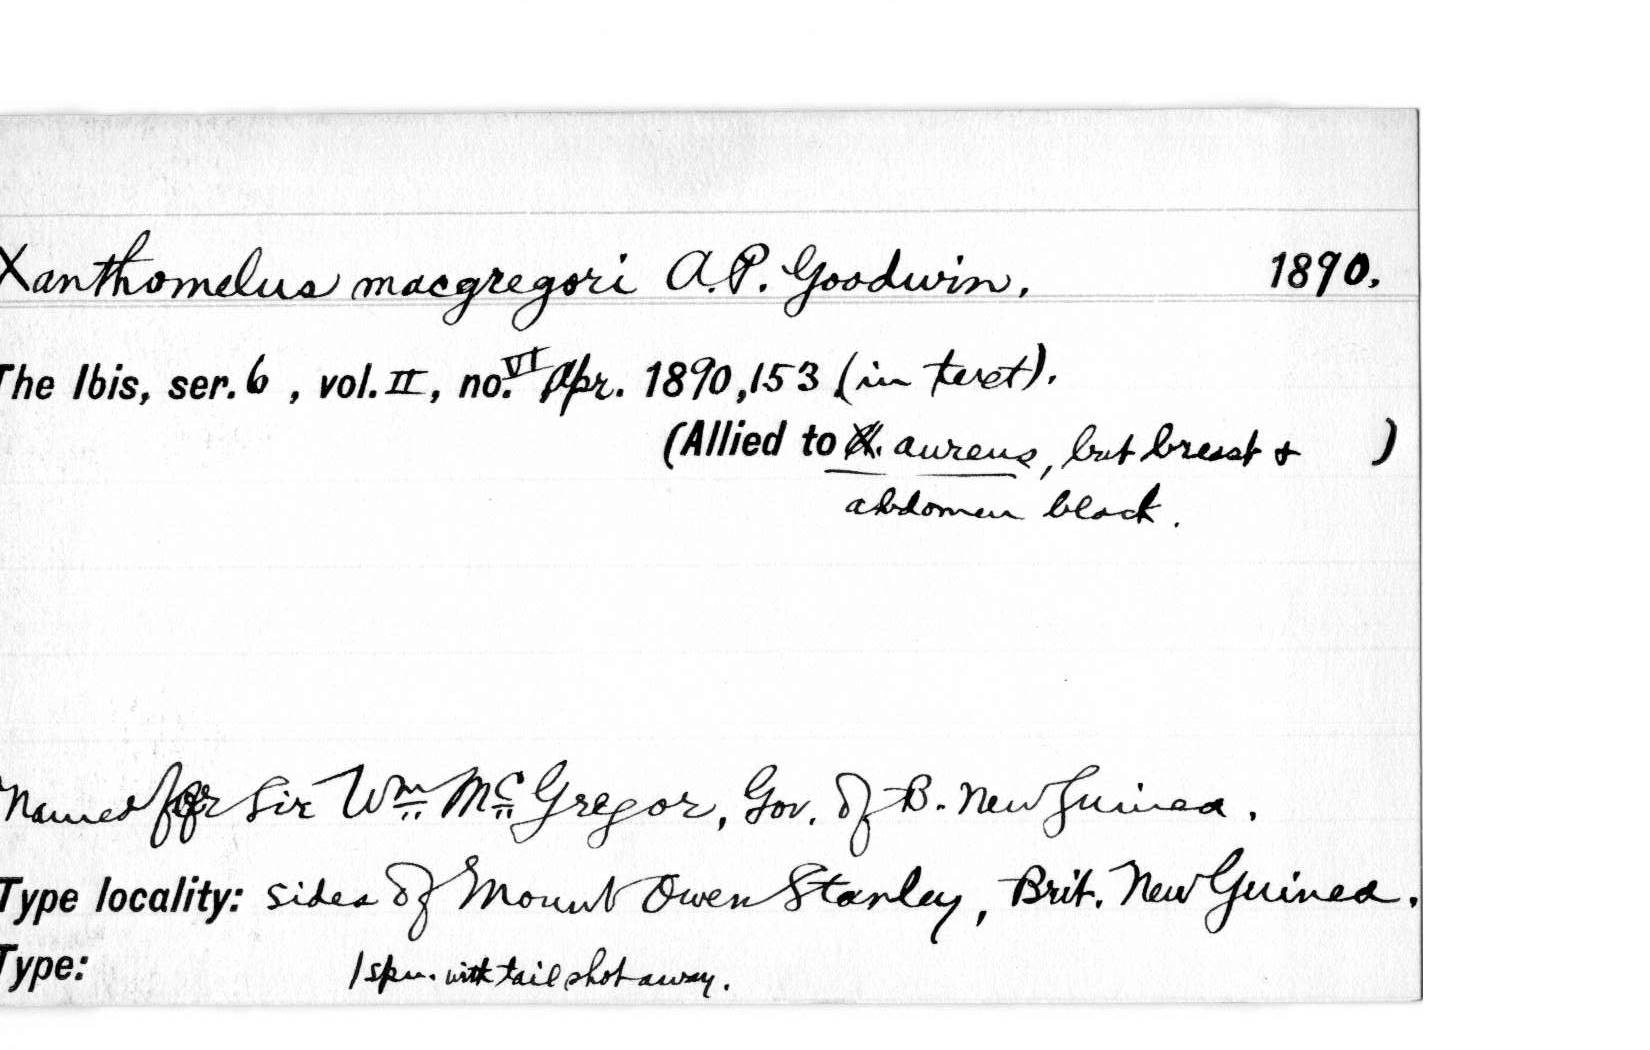 Xanthomelus macgregori A.P. Goodwin. 1890.
The Ibis, ser. 6, vol. II, no. VI Apr. 1890, 153 (in text).
(Allied to X. aureus, but breast & )
abdomen black.
Named for Sir Wm McGregor, Gov. of B. New Guinea.
Type locality: sides of Mount Owen Stanley, Brit. New Guinea.
Type: 1 spm. with tail shot away.